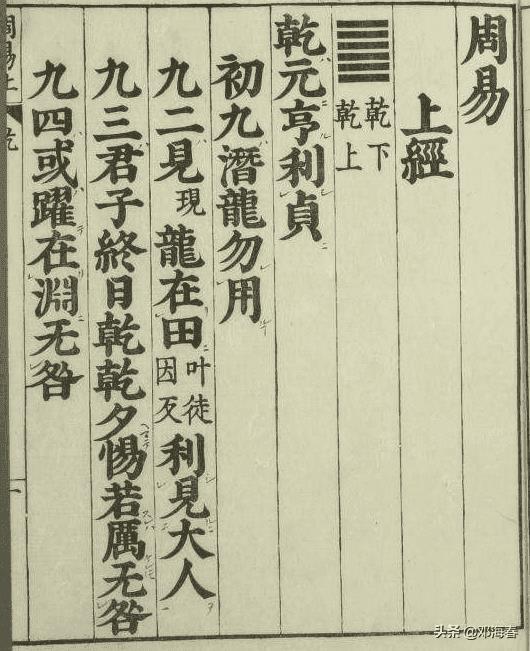 周易
上經
乾下
乾上
乾元亨利貞
初九潛龍勿用
九二見現龍在田叶徒因反利見大人
九三君子終日乾乾夕惕若厲无咎
九四或躍在淵无咎
周易上 乾 一
头条@邓海春